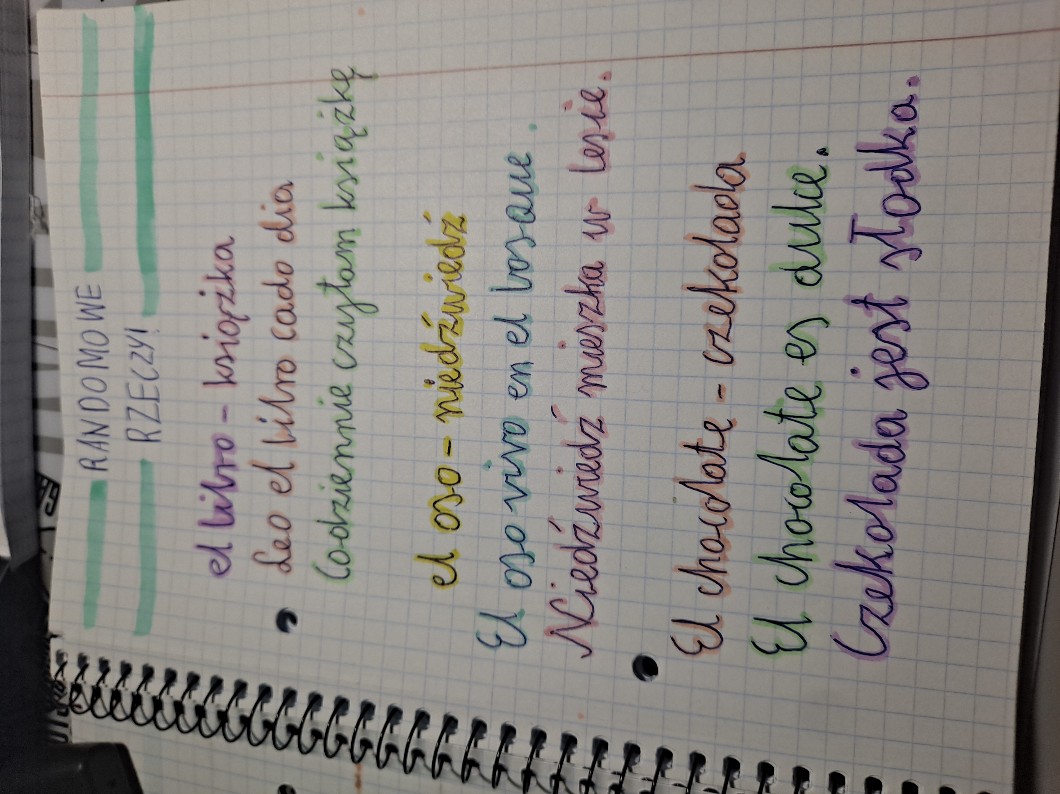 RANDOMOWE
RZECZY!
el libro - książka
Leo el libro cado dia
Codziennie czytam książkę
el oso - niedźwiedź
El oso vivo en el bosque.
Niedźwiedź mieszka w lesie.
El chocolate - czekolada
El chocolate es dulce.
Czekolada jest słodka.